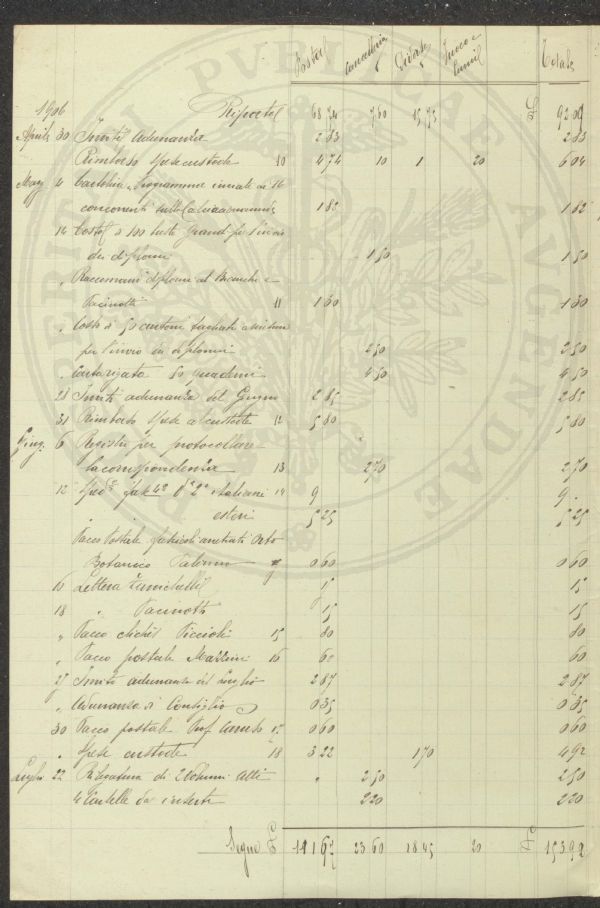 Postali Cancelleria Diverse Fuoco e lumi Totale
1906 Riporto £ 68 74 7 60 15 75 £ 92 09
Aprile 30 Inviti adunanza 2 83 2 83
Rimborso spese custode 10 4 74 10 1 20 6 04
Magg 4 Cartoline, Programmi inviati ai 16
concorrenti 1 82 1 82
14 Costo di 100 buste grandi per l'invio
dei diplomi 1 50 1 50
" Raccomand diplomi al Bianchi e
Pacinotti 11 1 30 1 30
" Costo di 50 cartoni tagliati a misura
per l'invio dei diplomi 2 50 2 50
" Carta rigata 50 quaderni 4 50 4 50
28 Inviti adunanza del Giugno 2 85 2 85
31 Rimborso spese al custode 12 5 80 5 80
Giug. 6 Registri per protocollare
la corrispondenza 13 2 70 2 70
12 Sped. fasc italiani 14 9 9
" esteri 5 25 5 25
Pacco Postale Orto
Botanico Palermo " 0 60 0 60
16 Lettera 15 15
18 " Pacinotti 15 15
" Pacco clichés Piccioli 15 80 80
" Pacco postale Mazzini 16 60 60
27 Inviti adunanza del Luglio 2 87 2 87
" Adunanza di Consiglio 0 35 0 35
30 Pacco postale Prof Caruso 17 0 60 0 60
" Spese custode 18 3 22 1 70 4 92
Luglio 22 Rilegatura di 2 volumi Atti " 2 50 2 50
4 Cartelle da inserti 2 20 2 20
Segue £ 111 67 23 60 18 45 20 £ 153 92